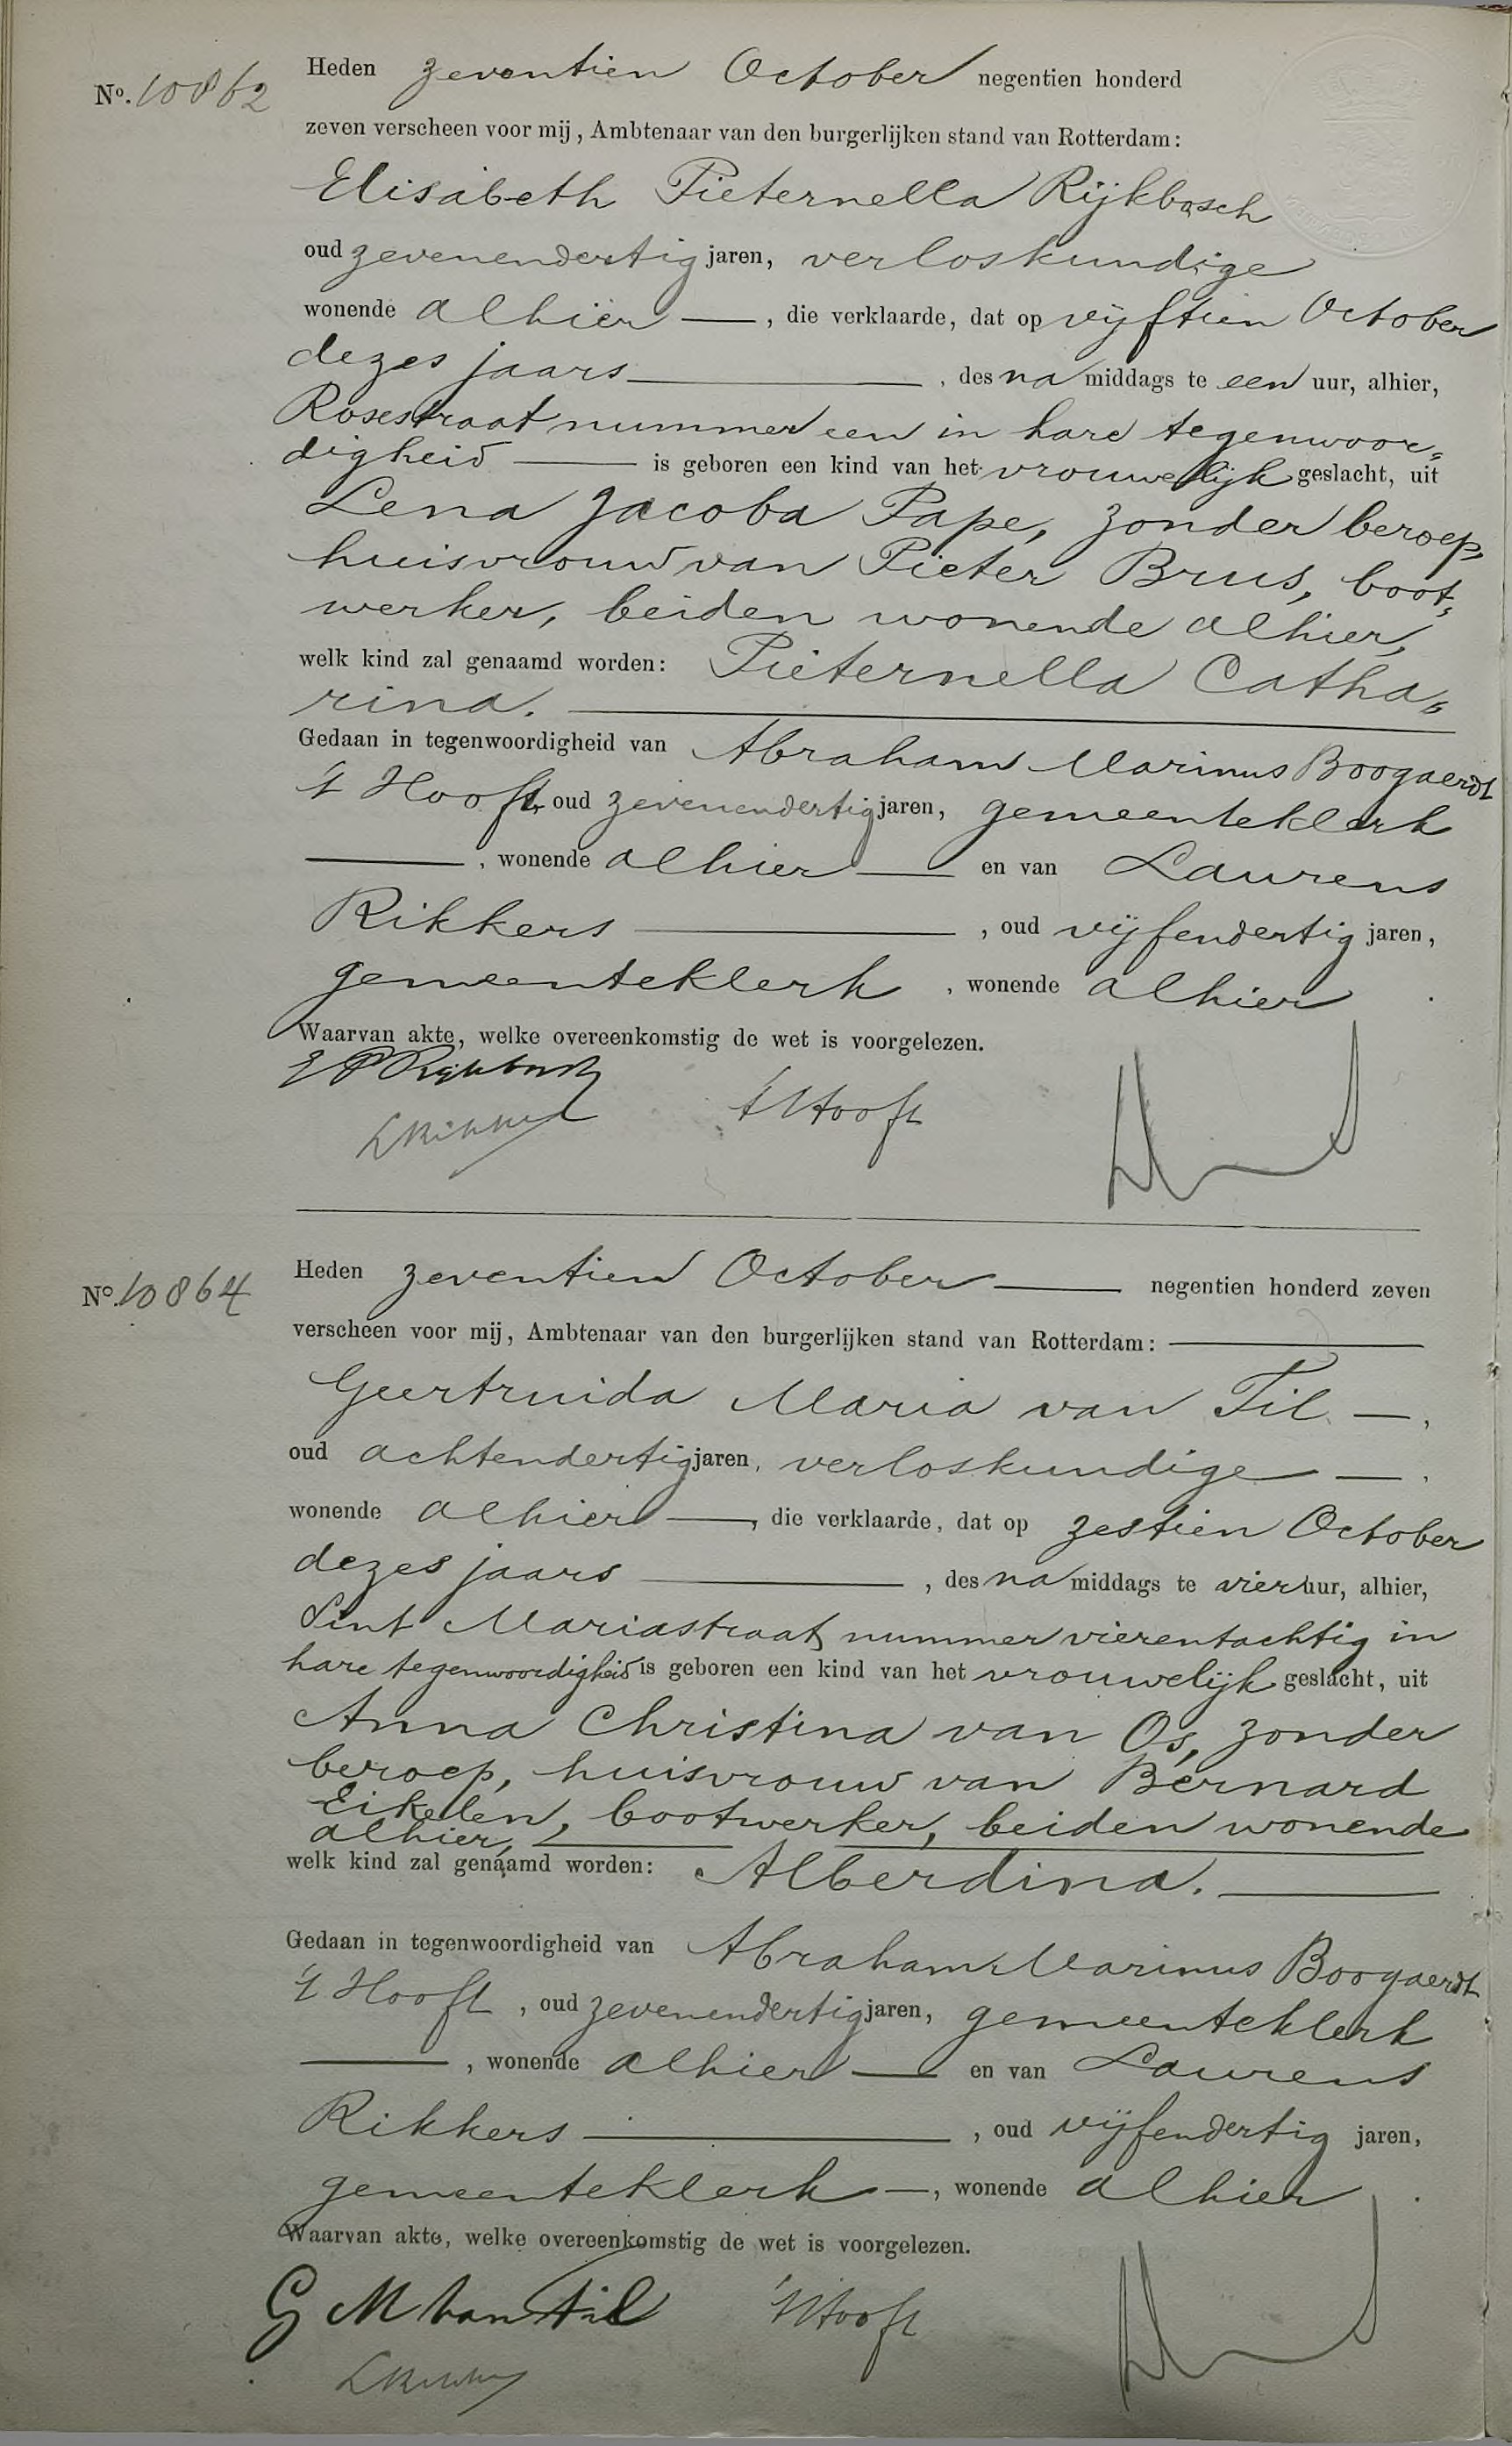 No. 10862
Heden zeventien October negentien honderd
zeven verscheen voor mij, Ambtenaar van den burgerlijken stand van Rotterdam:
Elisabeth Pieternella Rijkbosch
oud zevenendertig jaren, verloskundige
wonende alhier —, die verklaarde, dat op vijftien October
dezes jaars —, des na middags te een uur, alhier,
Rosestraat nummer een in hare tegenwoor=
digheid — is geboren een kind van het vrouwelijk geslacht, uit
Lena Jacoba Pape, zonder beroep,
huisvrouw van Pieter Brus, boot=
werker, beiden wonende alhier,
welk kind zal genaamd worden: Pieternella Catha=
rina. —
Gedaan in tegenwoordigheid van Abraham Marinus Boogaerdt
't Hooft, oud zevenendertig jaren, gemeenteklerk
—, wonende alhier — en van Laurens
Rikkers —, oud vijfendertig jaren,
gemeenteklerk, wonende alhier.
Waarvan akte, welke overeenkomstig de wet is voorgelezen.
E P Rijkbosch
L Rikkers 't Hooft
No. 10864
Heden zeventien October — negentien honderd zeven
verscheen voor mij, Ambtenaar van den burgerlijken stand van Rotterdam: —
Geertruida Maria van Til —,
oud achtendertig jaren, verloskundige —,
wonende alhier —, die verklaarde, dat op zestien October
dezes jaars —, des na middags te vier uur, alhier,
Sint Mariastraat nummer vierentachtig in
hare tegenwoordigheid is geboren een kind van het vrouwelijk geslacht, uit
Anna Christina van Os, zonder
beroep, huisvrouw van Bernard
Eikelen, bootwerker, beiden wonende
alhier, —
welk kind zal genaamd worden: Alberdina. —
Gedaan in tegenwoordigheid van Abraham Marinus Boogaerdt
't Hooft, oud zevenendertig jaren, gemeenteklerk
—, wonende alhier — en van Laurens
Rikkers —, oud vijfendertig jaren,
gemeenteklerk —, wonende alhier.
Waarvan akte, welke overeenkomstig de wet is voorgelezen.
G M van Til 't Hooft
L Rikkers